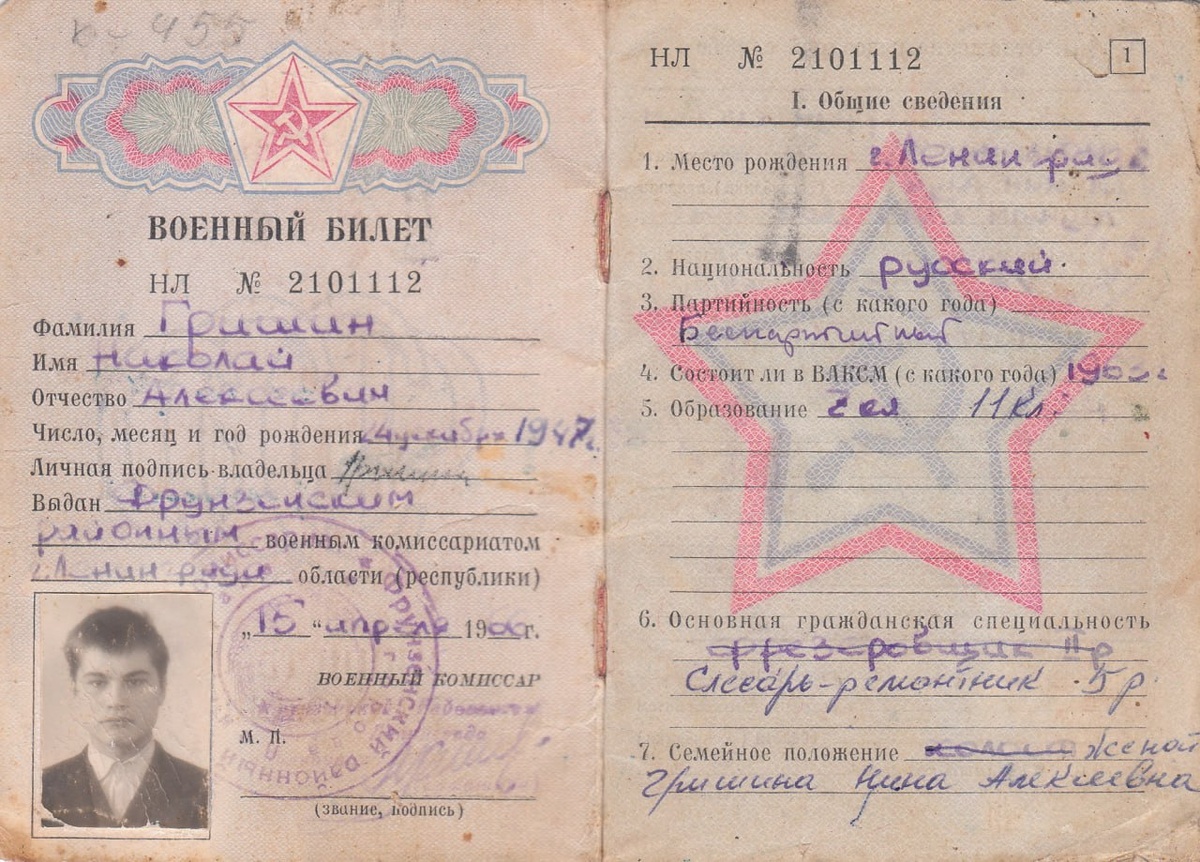 455
ВОЕННЫЙ БИЛЕТ
НЛ № 2101112
Фамилия Гришин
Имя Николай
Отчество Алексеевич
Число, месяц и год рождения декабря 1947г.
Личная подпись владельца
Выдан Фрунзенским
районным военным комиссариатом
г. Ленинграда области (республики)
„15“ апреля 196 г.
ВОЕННЫЙ КОМИССАР
М. П.
(звание, подпись)
НЛ № 2101112
1
I. Общие сведения
1. Место рождения г. Ленинград
2. Национальность русский.
3. Партийность (с какого года)
Беспартийный
4. Состоит ли в ВЛКСМ (с какого года)
5. Образование 11 кл.
6. Основная гражданская специальность
фрезеровщик II р
Слесарь-ремонтник 5 р.
7. Семейное положение Женой
Гришина Нина Алексеевна